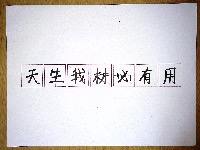 天生我材必有用